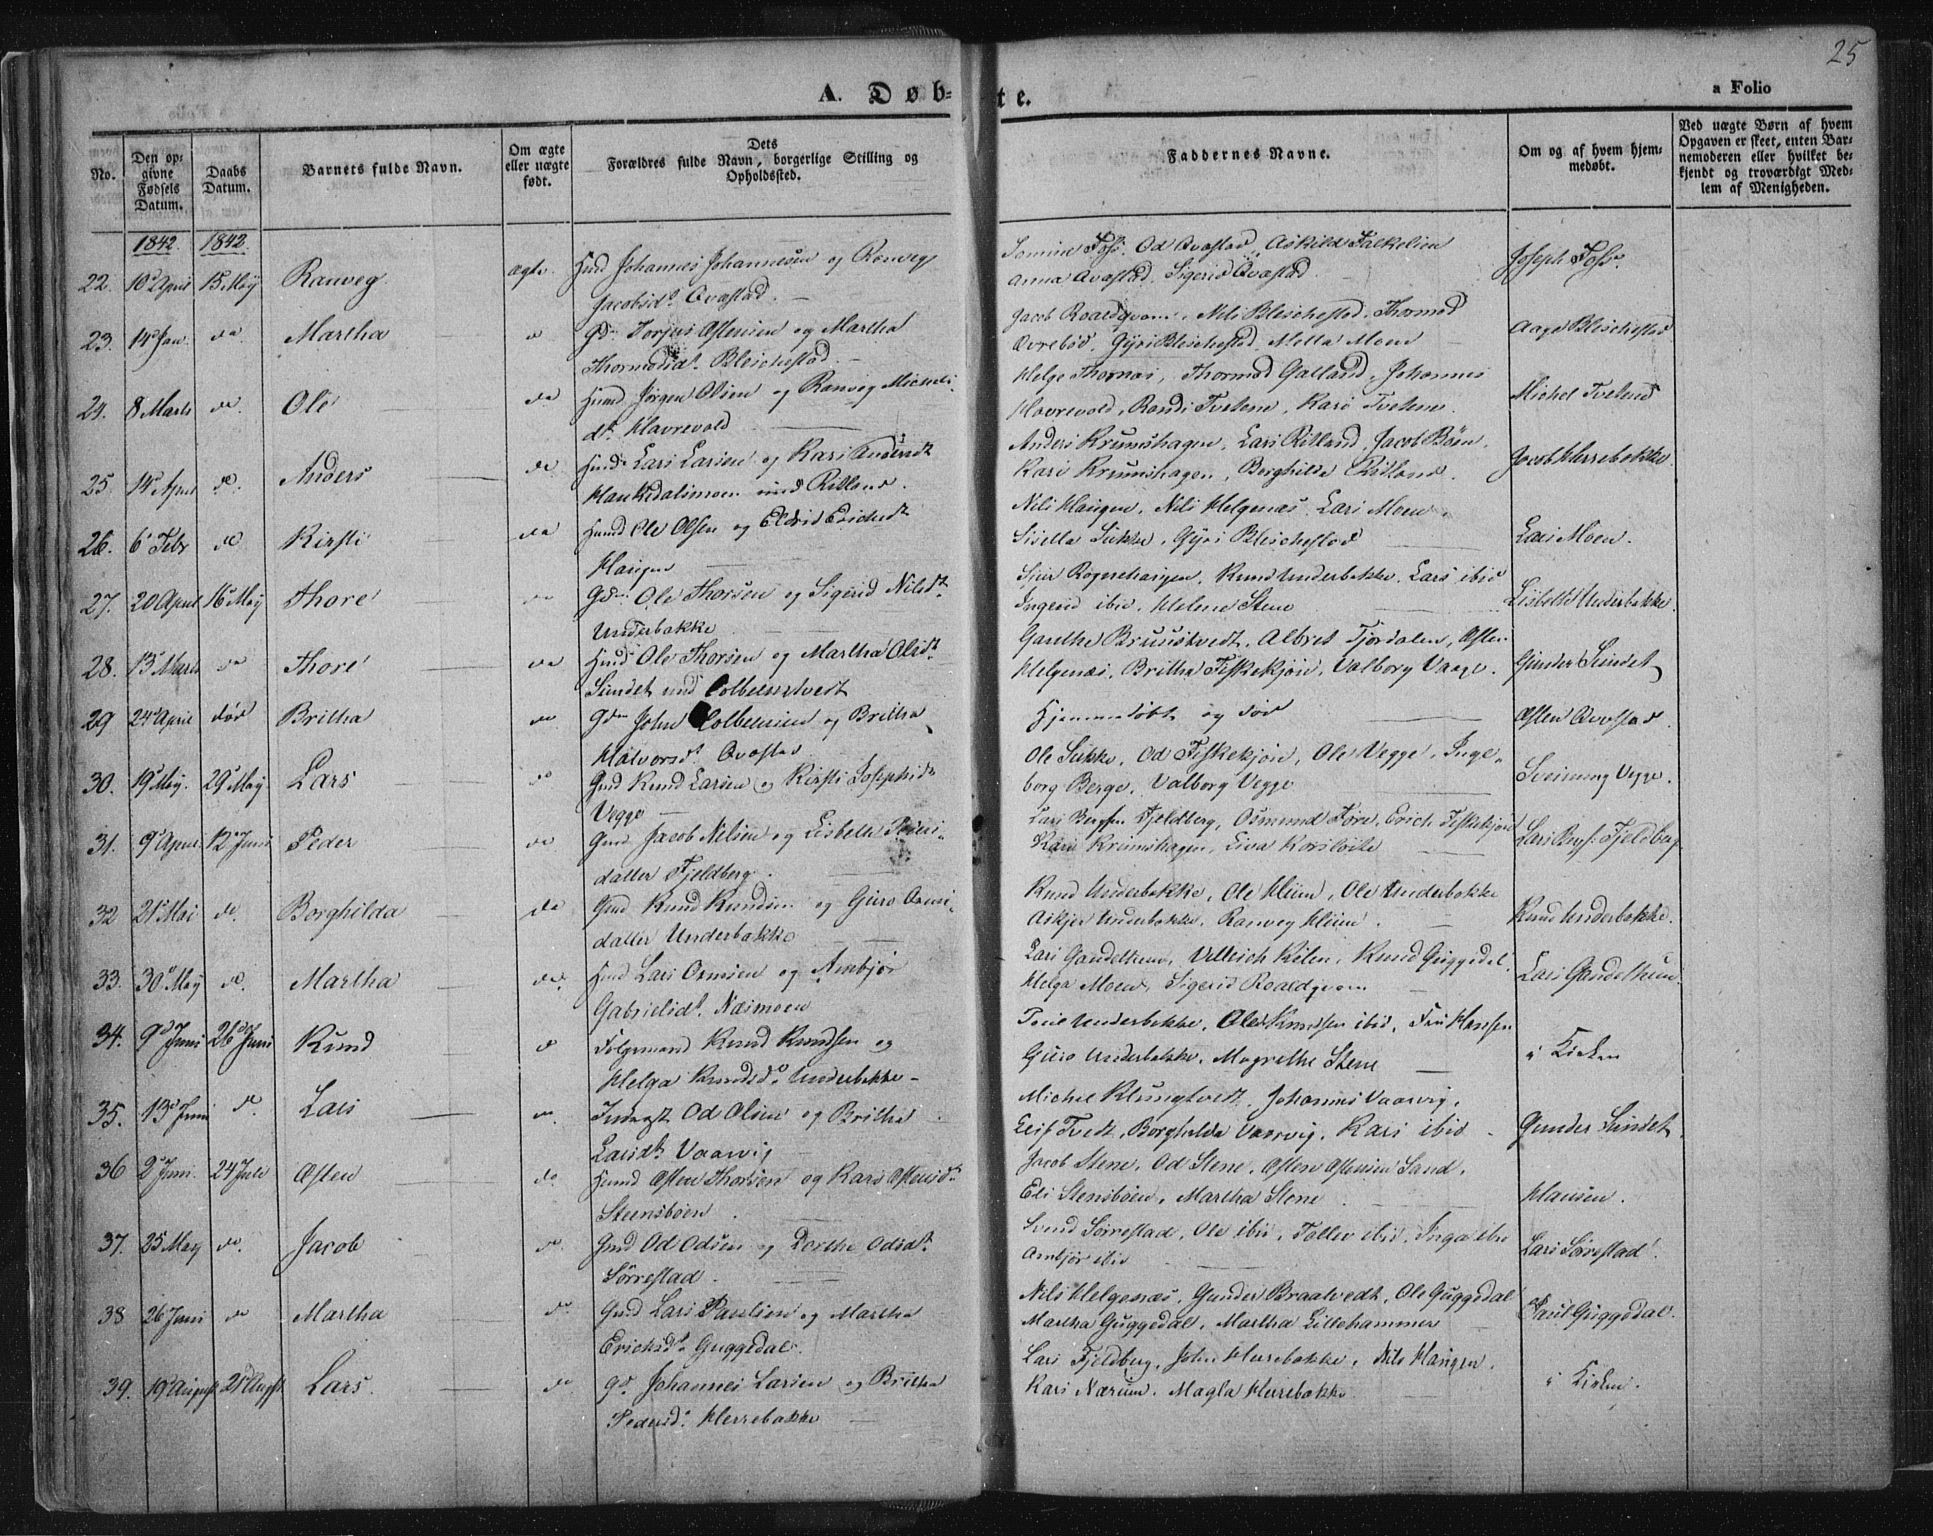 25
A. Døb-te.
a Folio
No.
Den opgivne Fødsels Datum.
Daabs Datum.
Barnets fulde Navn.
Om ægte eller uægte født.
Dets Forældres fulde Navn, borgerlige Stilling og Opholdssted.
Faddernes Navne.
Om og af hvem hjemmedøbt.
Ved uægte Børn af hvem Opgaven er skeet, enten Barnemoderen eller hvilket bekjendt og troværdigt Medlem af Menigheden.
1842. 1842.
22. 10 April 15 May Ranveg ægte Huusd Johannes Johannesen og Ranveg
Jacobsdr Qvastad
Foss. Od Qvastad, Askild Falkelien
Anna Qvastad. Sigerid Qvastad
Joseph Foss
23. 14 Jan. do Martha do Gd Torjus Ostensen og Martha
Thormodsdr. Bleschestad
Jacob Roaldqvam. Nils Bleschestad. Thormod
Øvrebøe. Gÿri Bleschestad. Mella Moen
Aage Bleschestad
24. 8 Marts do Ole do Huusd Jørgen Olsen og Ranveg Michels
dr. Havrevold
Helge Thornæs, Thormod Galland, Johannes
Havrevold, Randi Tvetene, Kari Tvetene
Michel Tvetene
25. 14 April do. Anders do Huusd Lars Larsen og Kari Andersdr
Haukedalsmoen und Ritland.
Anders Krumshagen, Lars Ritland, Jacob Bøen
Kari Krumshagen, Borghilde Ritland.
Jacob Herrebakke
26. 6 Febr do Kirsti do Huusd Ole Olsen og Eldrid Erichsdr
Haugen
Nils Haugen, Nils Helgenæs, Lars Moen
Sisella Sukke, Gÿri Bleschestad
Lars Moen.
27. 20 April 16 May Thore do Gd Ole Thorsen og Sigerid Nilsdr.
Underbakke
Haugen. Knud Underbakke. Lars ibid
Ingerid ibid. Helene Stene
Lisbeth Underbakke
28. 13 Marts do Thore do Huusd Ole Thorsen og Martha Olsdr.
Sundet und Colbeenstvedt
Garethe Bruunstvedt, Albret Fjordalen, Osten
Helgenæs, Britha Fiskekjøn, Valborg Vaage.
Gunder Sundet
29 24 April død Britha do Gd John Colbeensen og Britha
Halvorsdr. Qvastad.
Hjemmedøbt og død
Osten Qvastad
30. 19 May. 29 May Lars do Gmd Knud Larsen og Kirsti Josephsdr
Vegge
Ole Sukke, Od Fiskekjøn, Ole Vegge, Inge-
borg Berge, Valborg Vegge
Sveinung Vegge.
31. 9 April 12 Juni Peder do Gmd Jacob Nilsen og Lisbeth Peders-
datter Fjeldberg.
Lars Bergsen Fjeldberg, Osmund Fore, Erich Fiskekjøn
Kari Krumshagen, Siva
Lars Bergs. Fjeldberg
32 21 Mai do. Borghilda do Gmd Knud Knudsen og Guro Orms-
datter Underbakke
Knud Underbakke, Ole Heim, Ole Underbakke
Askjer Underbakke, Ranveg Heim.
Knud Underbakke.
33. 30 May do. Martha do. Huusd Lars Ormsen og Ambjør
Gabrielsdr. Næsmoen
Lars Gandelkun, Villeich Kilen, Knud Guggedal
Helga Moen, Sigerid Roaldqvam
Lars Gandelkun
34. 9 Juni 26 Juni Knud do Følgemand Knud Knudsen og
Helga Knudsdr Underbakke
Underbakke, Ole Knudsen ibid. Fru Hansen
Guro Underbakke. Magrethe Stene
i Kirken
35. 13 Juni do. Lars do. Inderst Od Olsen og Britha
Larsdr. Vaarvig
Michel Klungtvedt, Johannes Vaarvig,
Tvedt, Borghilda Vaarvig, Kari ibid
Gunder Sundet.
36 2 Juni. 24 Juli Osten do. Huusd Osten Thorsen og Kari Ostensdr.
Steensbøen
Jacob Stene, Od Stene, Osten Ostensen Sand,
Eli Stensbøen, Martha Stene
Hansen.
37. 25 May do. Jacob do. Gmd Od Odsen og Dorthe Odsdr.
Sørrestad
Svend Sørrestad, Ole ibid, Tallev ibid. Inga ibid
Ambjør ibid
Lars Sørrestad.
38 26 Juni do Martha do. Gmd Lars Paulsen og Martha
Erichsdr. Guggedal.
Nils Helgenæs, Gunder Braatvedt, Ole Guggedal
Martha Guggedal, Martha Lillehammer
Paul Guggedal.
39. 19 August 21 Augst Lars. do Gd. Johannes Larsen og Britha
Pedersd. Herrebakke
Lars Fjeldberg, John Herrebakke, Nils Haugen.
Kari Nærum. Magla Herrebakke
i Kirken.